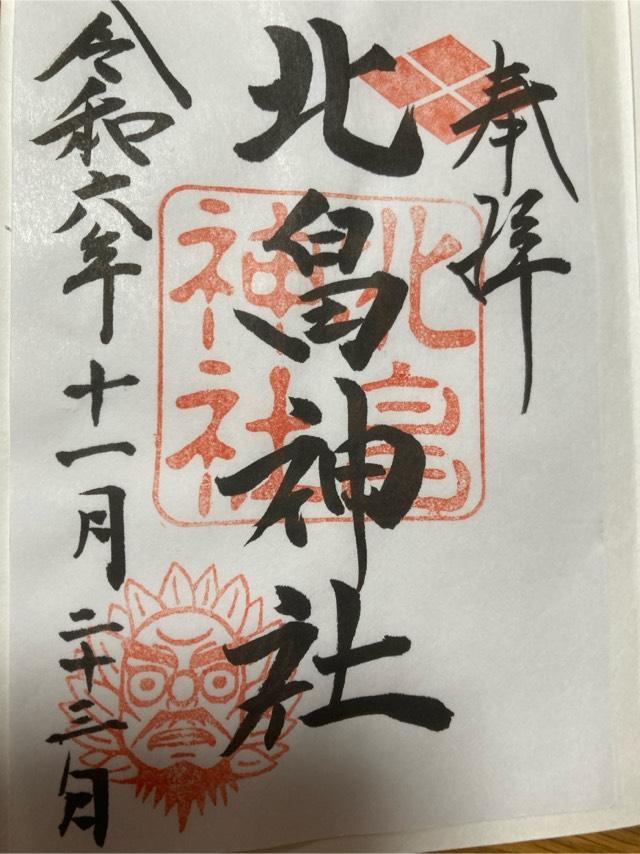 奉拝
北畠神社
北畠
神社
令和六年十一月二十三日